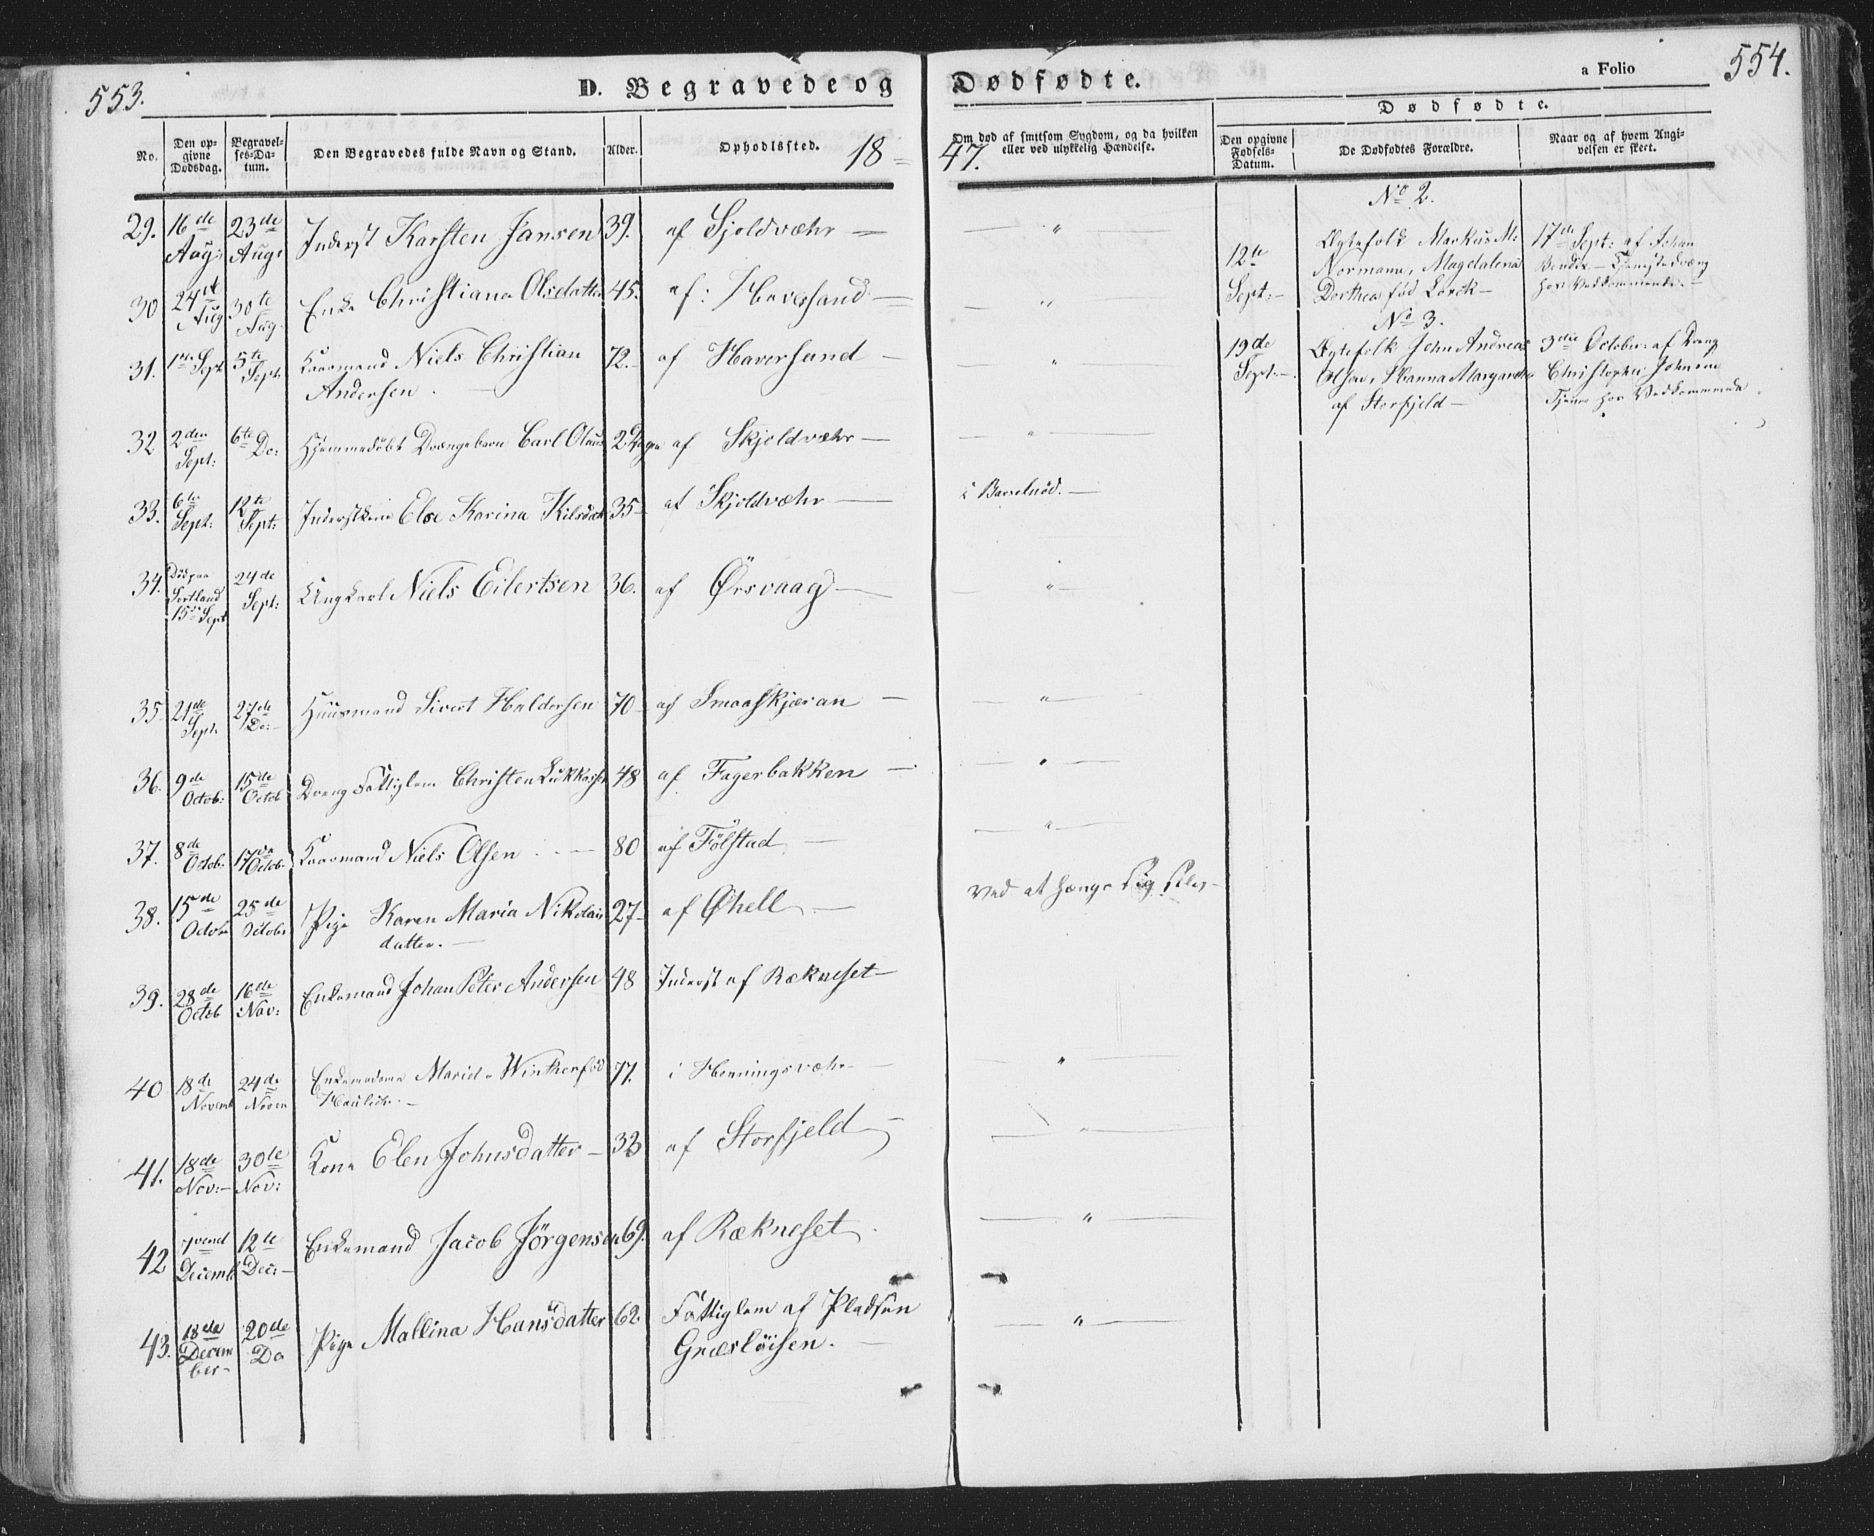 553.
D. Begravede og Dødfødte.
a Folio
554.
No.
Den opgivne Dødsdag.
Begravelses-Datum.
Den Begravedes fulde Navn og Stand.
Alder.
Opholdssted.
1847.
Om død af smitsom Sygdom, og da hvilken
eller ved ulykkelig Hændelse.
Dødfødte.
Den opgivne Fødsels-Datum.
De Dødfødtes Forældre.
Naar og af hvem Angivelsen er skeet.
29. 16de Aug: 23de Aug: Inderst Karsten Jansen 39. af Sjoldvæhr — "
30 24de Aug 30te Aug. Enke Christiana Olsdatter 45. af: Haversand — "
31. 1ste Sept 5te Sept: Gaarmand Niels Christian 72. af Haversand — "
Andersen.
32 2den Sept: 6te Do: Hjemmedøbt Drængebarn Carl Olaus 2 Dage af Skjoldvæhr — "
33. 6te Sept: 12te Sept: Inderstkone Else Karina Nilsdat 35 af Skjoldvæhr — i Barselnød. —
34. Død paa Sortland 15de Sept 24de Sept: Ungkarl Niels Eilertsen 36. af Ørsvaag — "
35 21de Sept. 27de Do: Huusmand Sivert Haldorsen 70 af Smaaskjæran — "
36. 9de Octob: 15de Octob Dreng Fattiglem Christen Lukkassen 48 af Fagerbakken — "
37. 8de Octob: 17de Octob: Gaarmand Niels Olsen 80 af Følstad — "
38. 15de Octob 25de Octob: Pige Karen Maria Nikolai- 27 af Øhell — Ved at hænge sig selv —
datter. —
39. 28de Octob 16de Nov: Enkemand Johan Peter Andersen 48 Inderst af Rækneset —
40 18de Novemb 24de Novem Enkemadame Winther fød 77. i Henningsvæhr — "
41. 18de Nov: 30te Nov: Kone Elen Johnsdatter — 33 af Storfjeld —
42 Decemb 12te Dec: Enkemand Jacob Jørgensen 69. af Rækneset — "
43. 18de December 20de Do Pige Mallina Hansdatter 62. Fattiglem af Pladsen — "
No 2.
12te Sept: — Ægtefolk Markus M: 17de Sept: af Johan
Normann, Magdalena Bendix — Tjenestedræng
Dorthea fød Lorck — hos Vedkommende. —
No 3.
19de Sept: — Ægtefolk John Andreas 3die October: af Dreng
Olsen, Hanna Margaretha Christopher Johnsen
af Storfjeld — Tjener hos Vedkommende